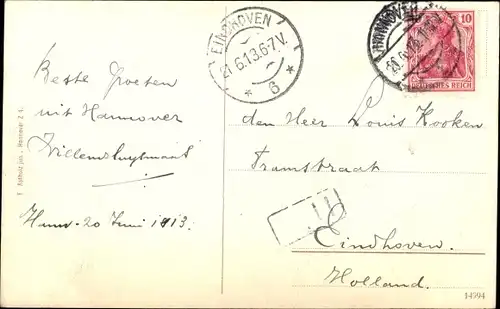 Beste Groeten
uit Hannover
Hann- 20 Juni 1913.
EINDHOVEN
21.6.13.6-7V.
* 6 *
HANNOVER
10
DEUTSCHES REICH
den Heer Louis Kooken
Tramstraat
Eindhoven.
Holland.
14994